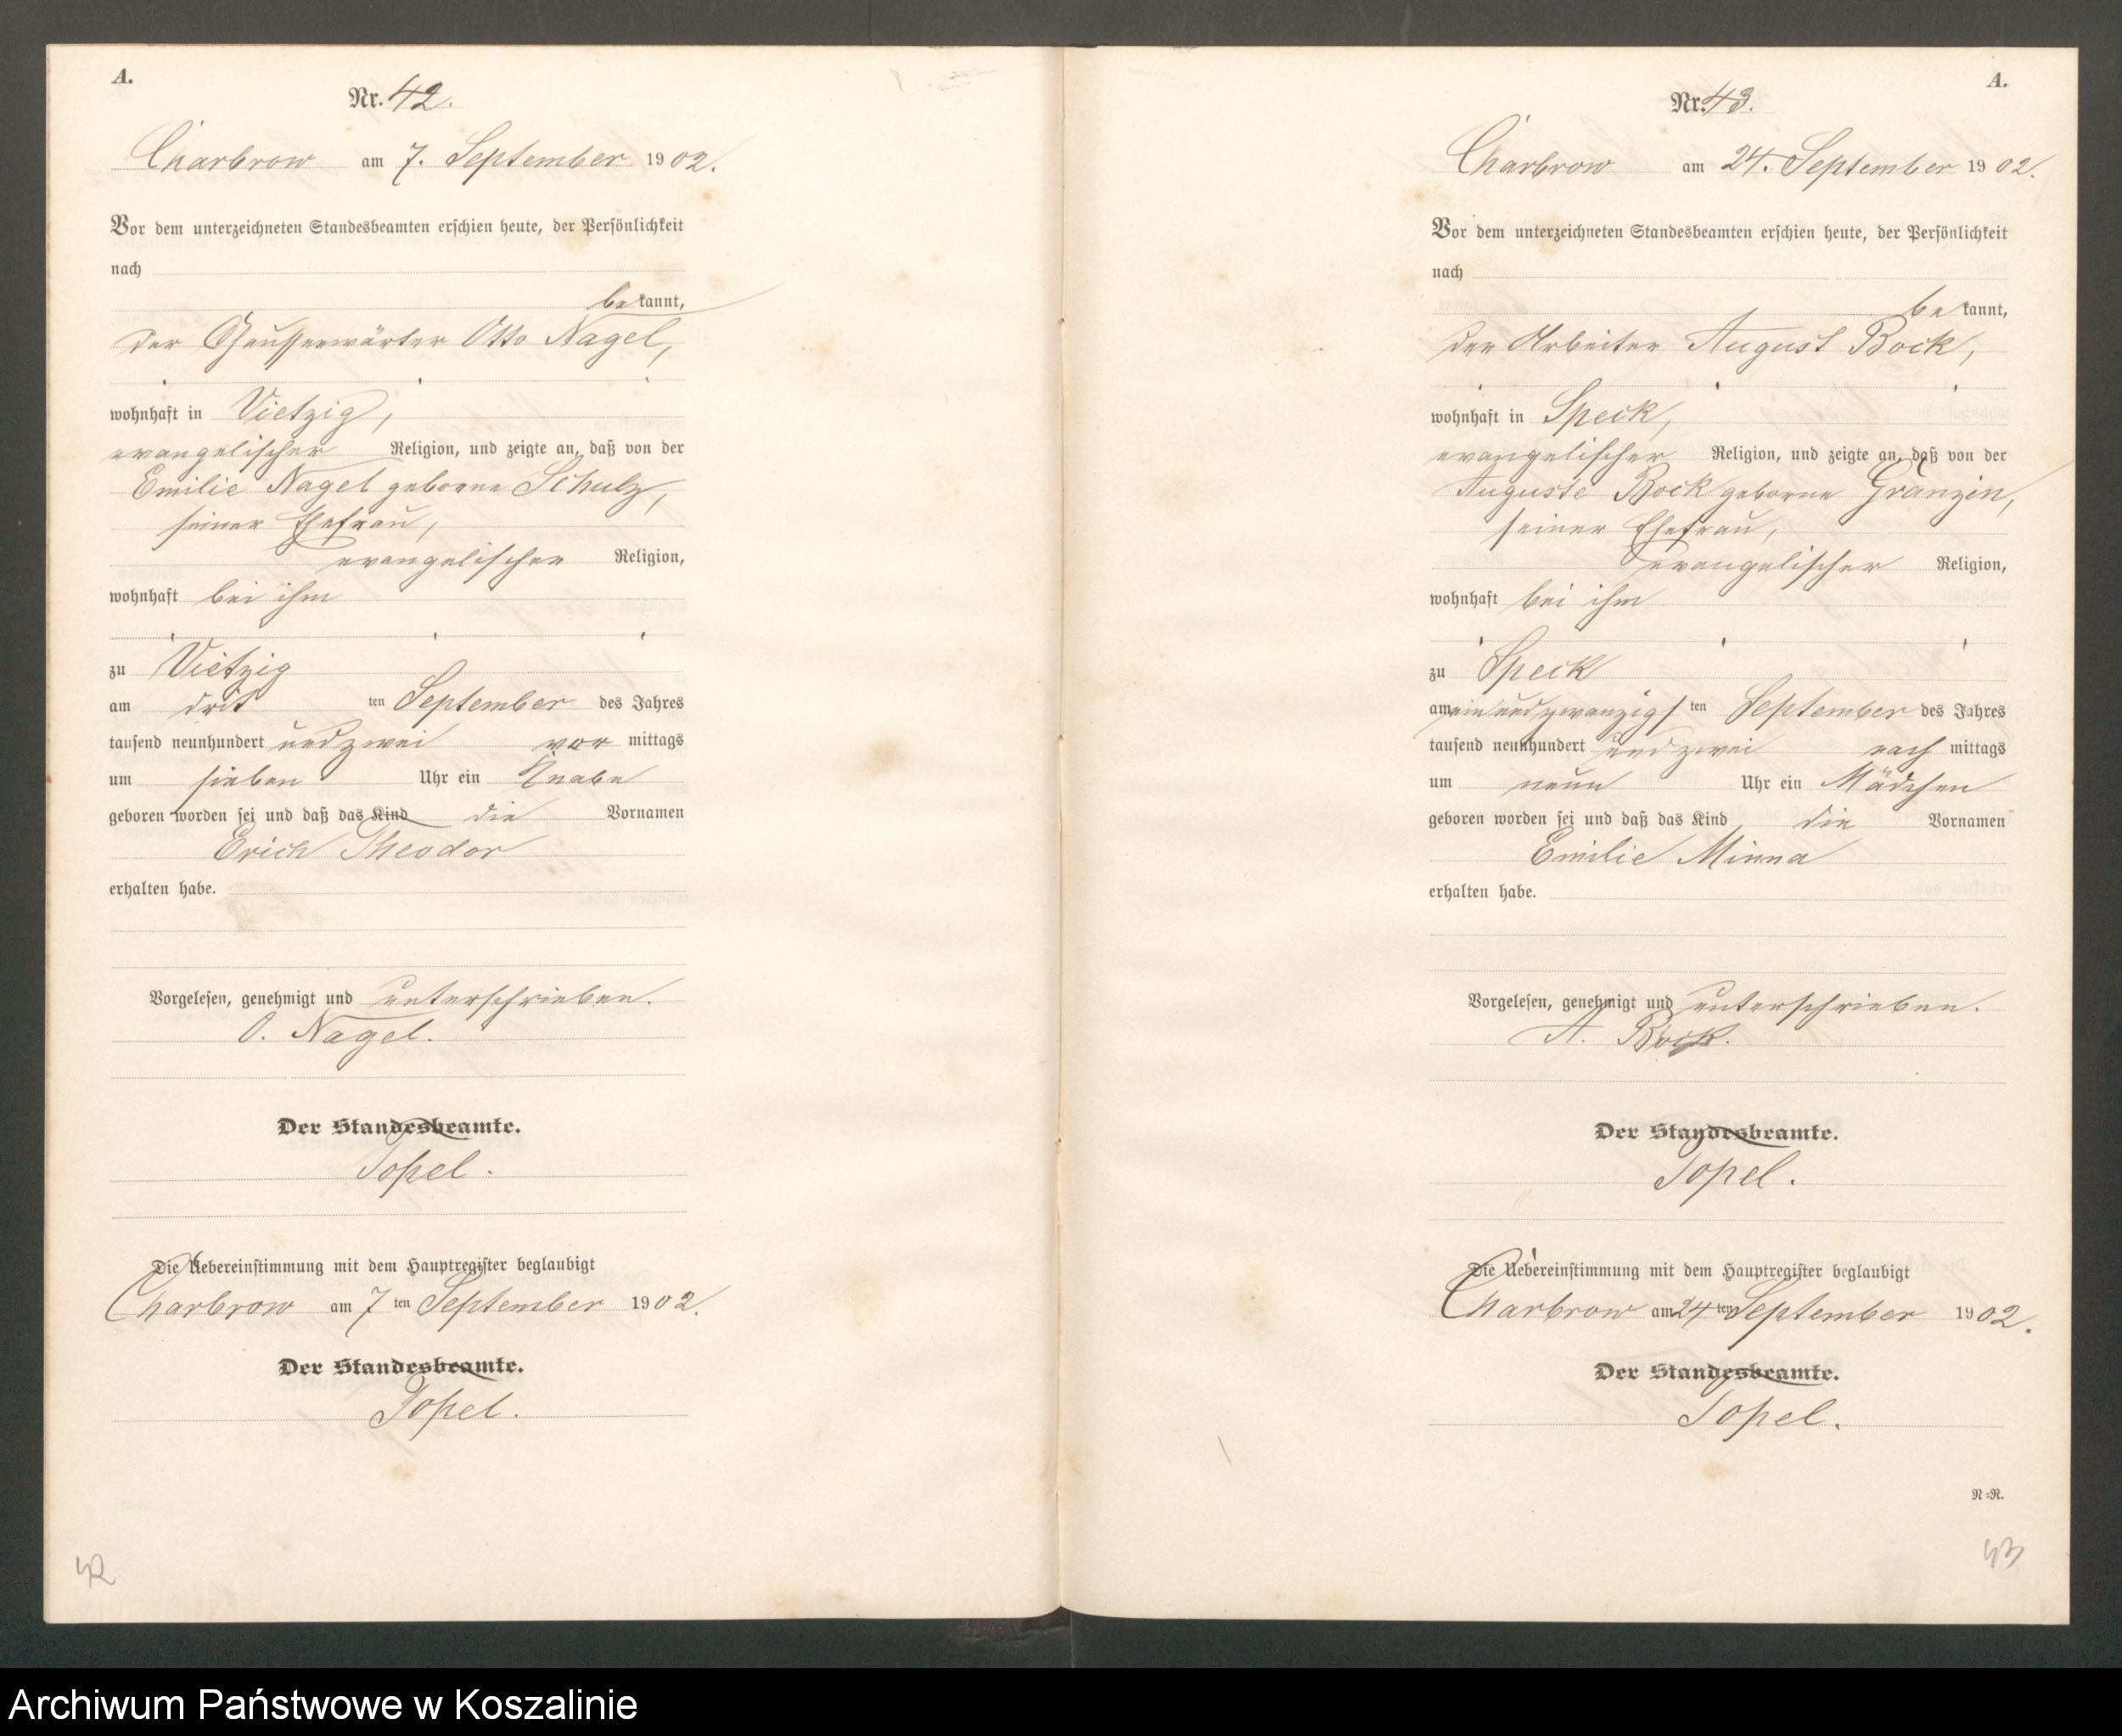 A.
Nr. 42.
Charbrow am 7. September 1902.
Vor dem unterzeichneten Standesbeamten erschien heute, der Persönlichkeit
nach
bekannt,
der Chausseewärter Otto Nagel,
wohnhaft in Vietzig,
evangelischer Religion, und zeigte an, daß von der
Emilie Nagel geborne Schulz,
seiner Ehefrau,
evangelischer Religion,
wohnhaft bei ihm
zu Vietzig
am drit ten September des Jahres
tausend neunhundert und zwei vor mittags
um sieben Uhr ein Knabe
geboren worden sei und daß das Kind die Vornamen
Erich Theodor
erhalten habe.
Vorgelesen, genehmigt und unterschrieben.
O. Nagel.
Der Standesbeamte.
Topel.
Die Uebereinstimmung mit dem Hauptregister beglaubigt
Charbrow am 7 ten September 1902.
Der Standesbeamte.
Topel.
42
A.
Nr. 43.
Charbrow am 24. September 1902.
Vor dem unterzeichneten Standesbeamten erschien heute, der Persönlichkeit
nach
bekannt,
der Arbeiter August Bock,
wohnhaft in Speck,
evangelischer Religion, und zeigte an, daß von der
Auguste Bock geborne Granzin,
seiner Ehefrau,
evangelischer Religion,
wohnhaft bei ihm
zu Speck
am einundzwanzigs ten September des Jahres
tausend neunhundert und zwei nach mittags
um neun Uhr ein Mädchen
geboren worden sei und daß das Kind die Vornamen
Emilie Minna
erhalten habe.
Vorgelesen, genehmigt und unterschrieben.
A. Bock.
Der Standesbeamte.
Topel.
Die Uebereinstimmung mit dem Hauptregister beglaubigt
Charbrow am 24 ten September 1902.
Der Standesbeamte.
Topel.
N=R.
43
Archiwum Państwowe w Koszalinie